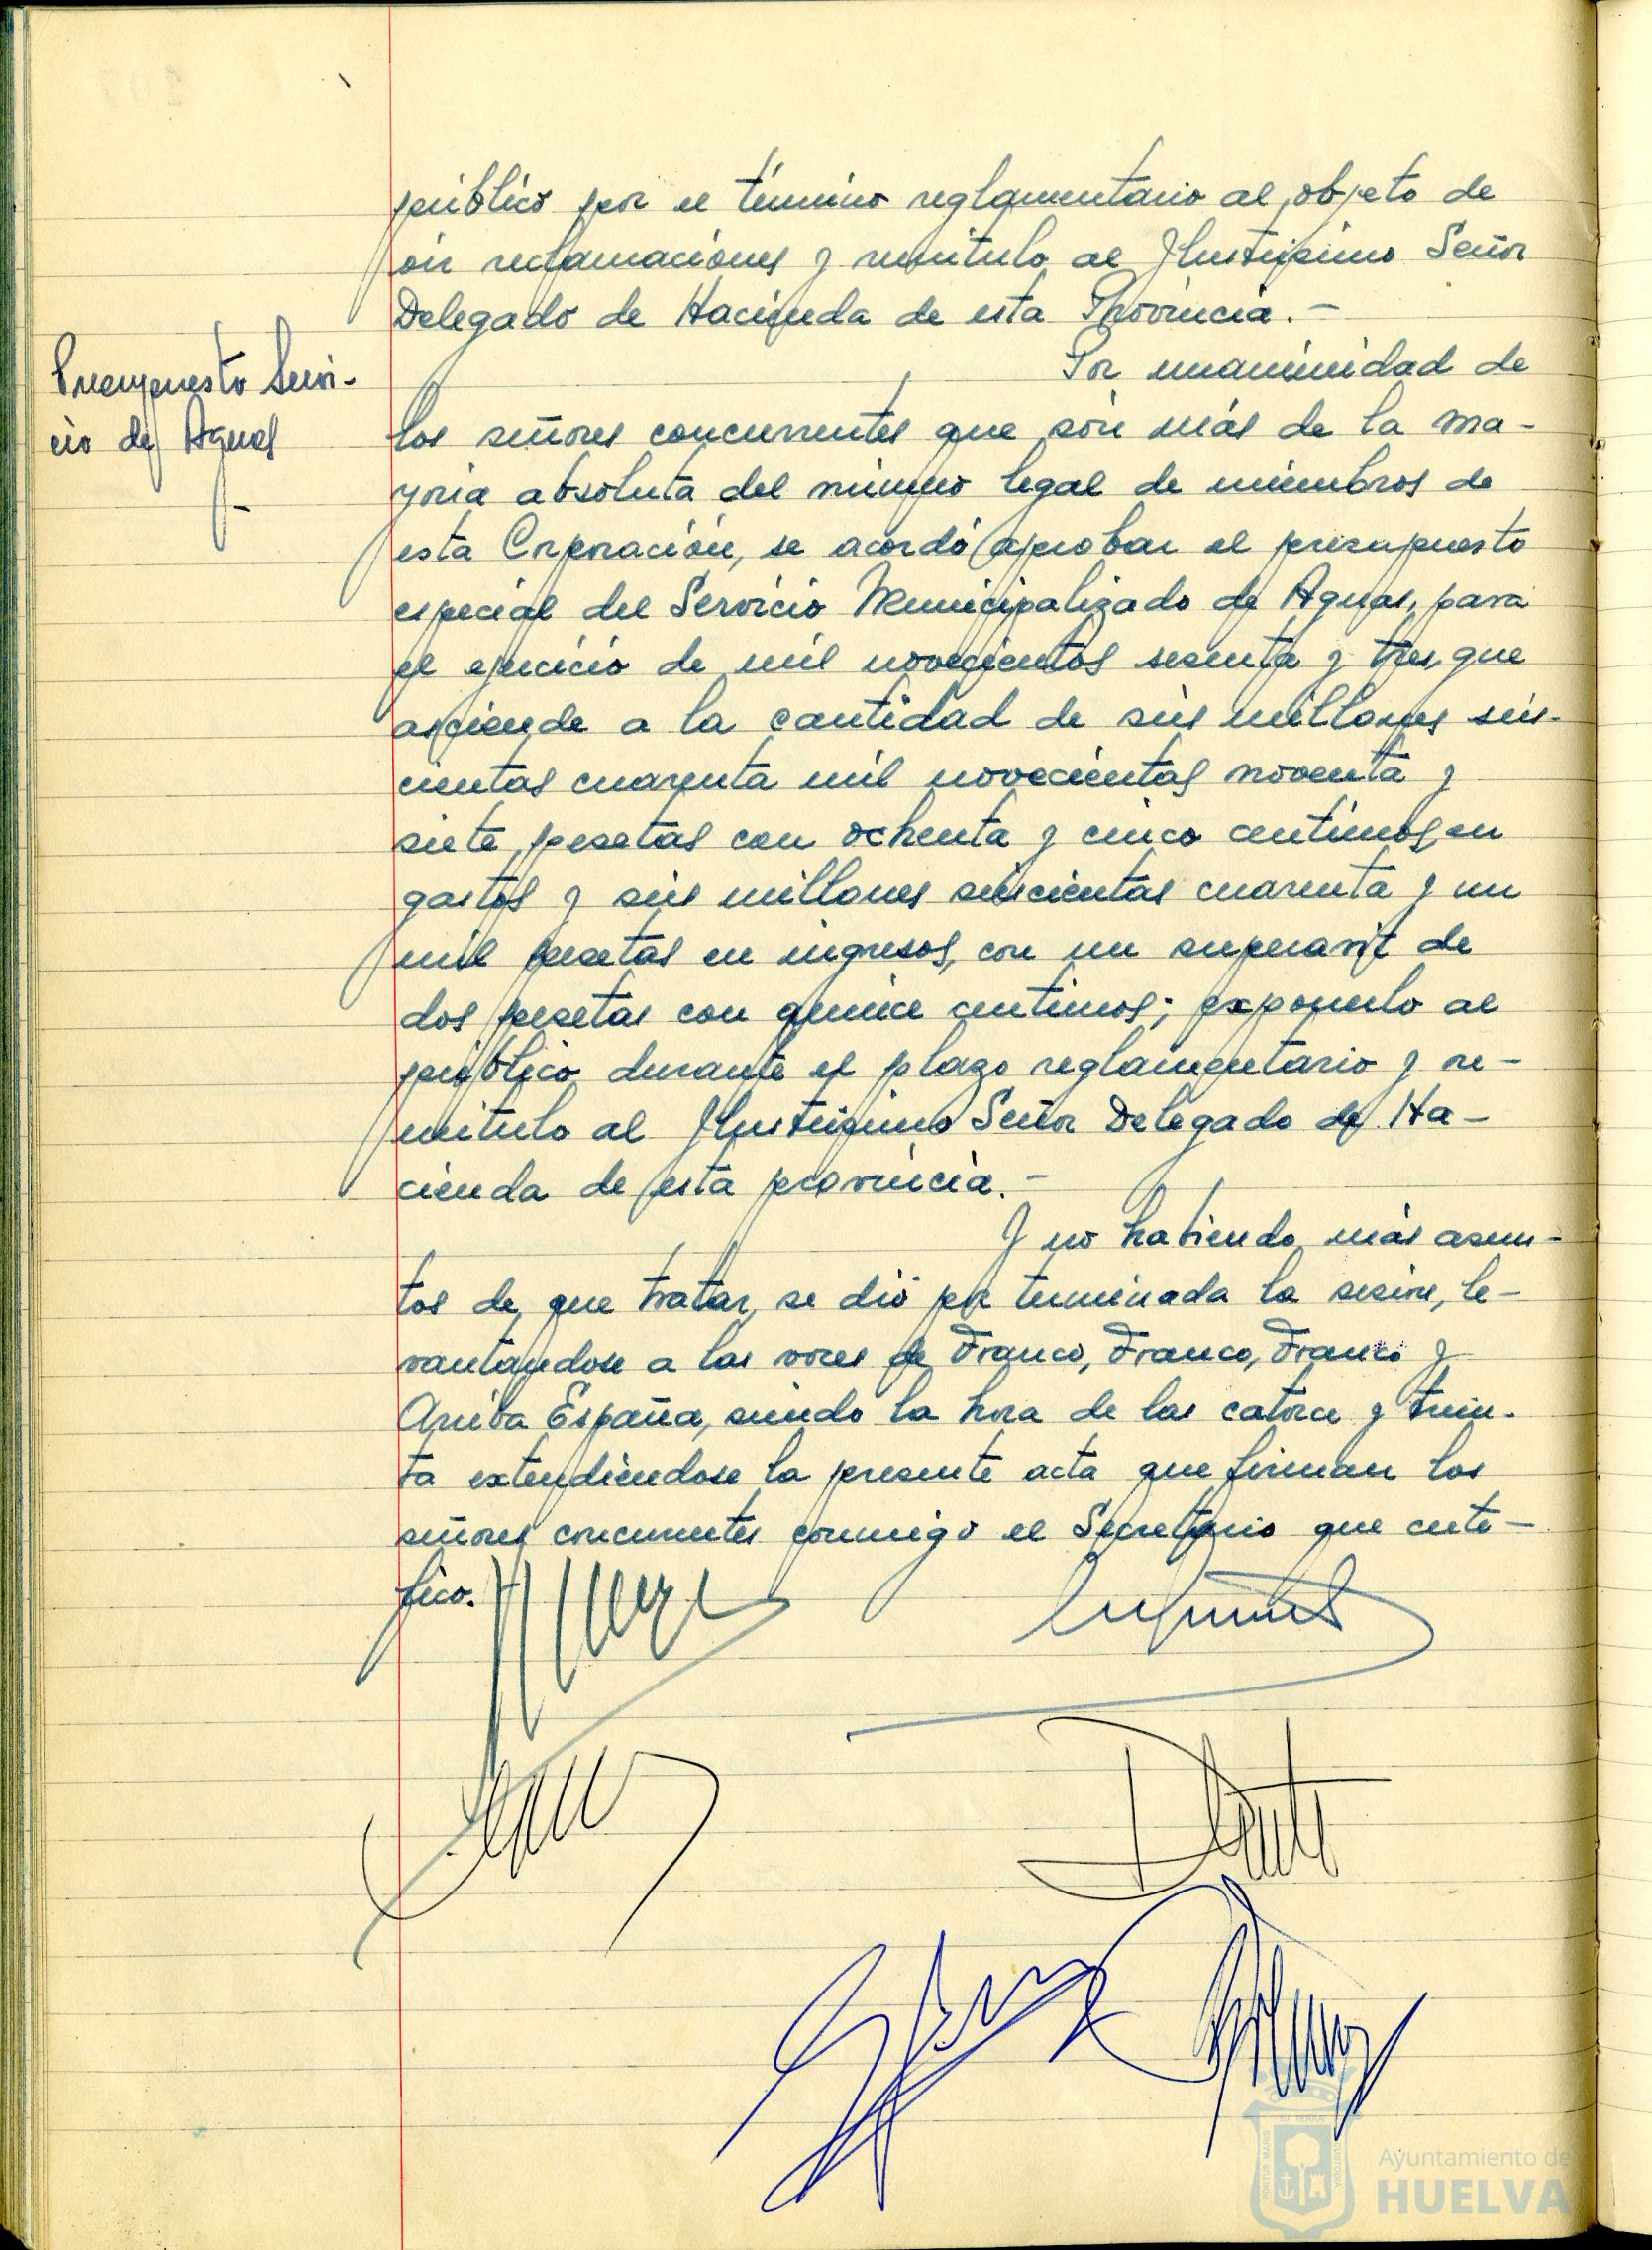 público por el término reglamentario al objeto de
oir reclamaciones y remitirlo al Ilustrisimo Señor
Delegado de Hacienda de esta Provincia.-
Presupuesto Servi-
cio de Aguas
Por unanimidad de
los señores concurrentes que son más de la ma-
yoria absoluta del número legal de miembros de
esta Corporación, se acordó aprobar el presupuesto
especial del Servicio Municipalizado de Aguas, para
el ejercicio de mil novecientos sesenta y tres, que
asciende a la cantidad de seis millones seis-
cientas cuarenta mil novecientas noventa y
siete, pesetas con ochenta y cinco centimos, en
gastos y seis millones seiscientas cuarenta y un
mil pesetas en ingresos, con un superavit de
dos pesetas con quince centimos; exponerlo al
público durante el plazo reglamentario y re-
mitirlo al Ilustrisimo Señor Delegado de Ha-
cienda de esta provincia.-
Y no habiendo más asun-
tos de que tratar, se dió por terminada la sesión, le-
vantandose a las voces de Franco, Franco, Franco y
Arriba España, siendo la hora de las catorce y trein-
ta extendiendose la presente acta que firman los
señores concurrentes conmigo el Secretario que certi-
fico.
Ayuntamiento de
HUELVA